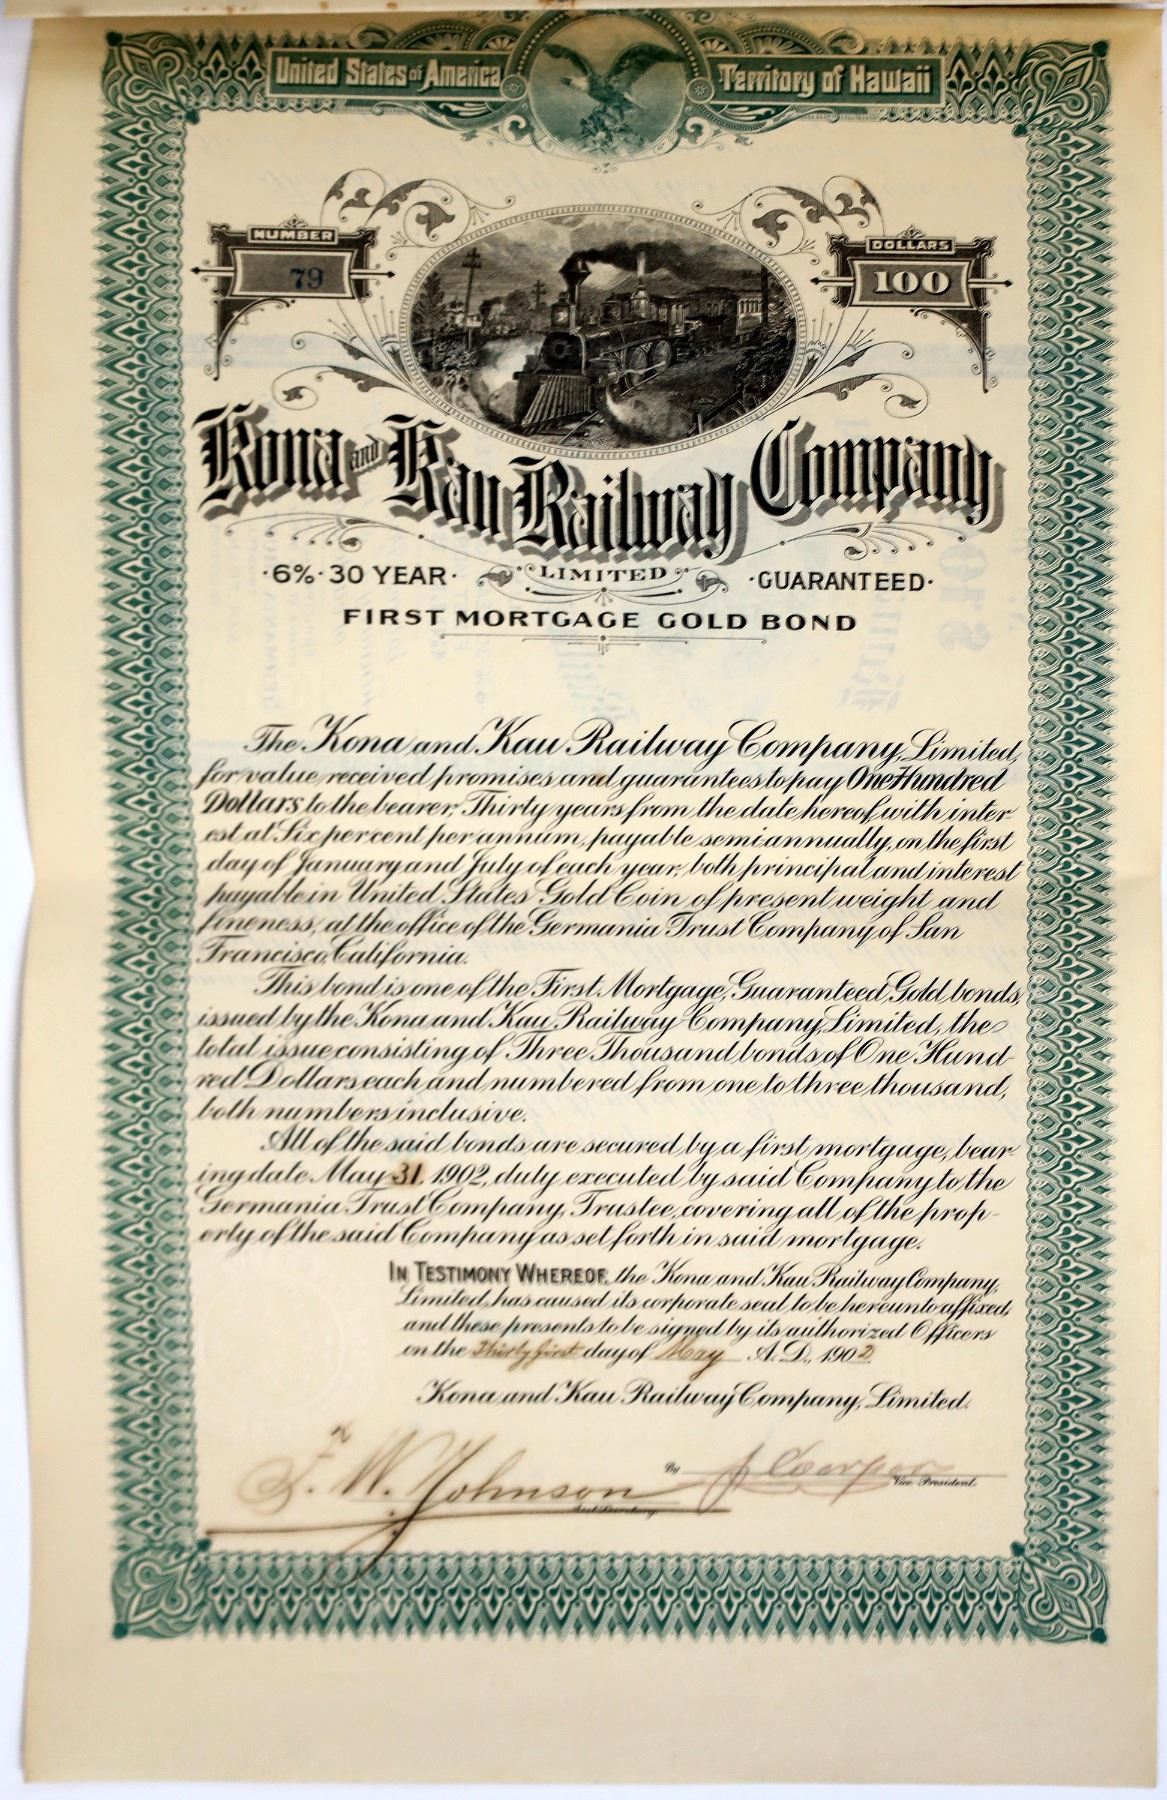 United States of America
Territory of Hawaii
NUMBER
79
DOLLARS
100
Kona and Kau Railway Company
LIMITED
·6%·30 YEAR·
·GUARANTEED·
FIRST MORTGAGE GOLD BOND
The Kona and Kau Railway Company, Limited,
for value received promises and guarantees to pay One Hundred
Dollars to the bearer, Thirty years from the date hereof, with inter
est at Six per cent per annum, payable semiannually, on the first
day of January and July of each year, both principal and interest
payable in United States Gold Coin of present weight and
fineness, at the office of the Germania Trust Company of San
Francisco, California.
This bond is one of the First Mortgage, Guaranteed, Gold bonds,
issued by the Kona and Kau Railway Company, Limited, the
total issue consisting of Three Thousand bonds of One Hund-
red Dollars each and numbered from one to three thousand,
both numbers inclusive.
All of the said bonds are secured by a first mortgage, bear-
ing date May 31, 1902, duly executed by said Company to the
Germania Trust Company, Trustee, covering all of the prop-
erty of the said Company as set forth in said mortgage.
IN TESTIMONY WHEREOF, the Kona and Kau Railway Company,
Limited, has caused its corporate seal to be hereunto affixed,
and these presents to be signed by its authorized Officers
on the Thirty first day of May A. D., 1902
Kona and Kau Railway Company, Limited.
W. Johnson
By
Vice President.
Secretary.